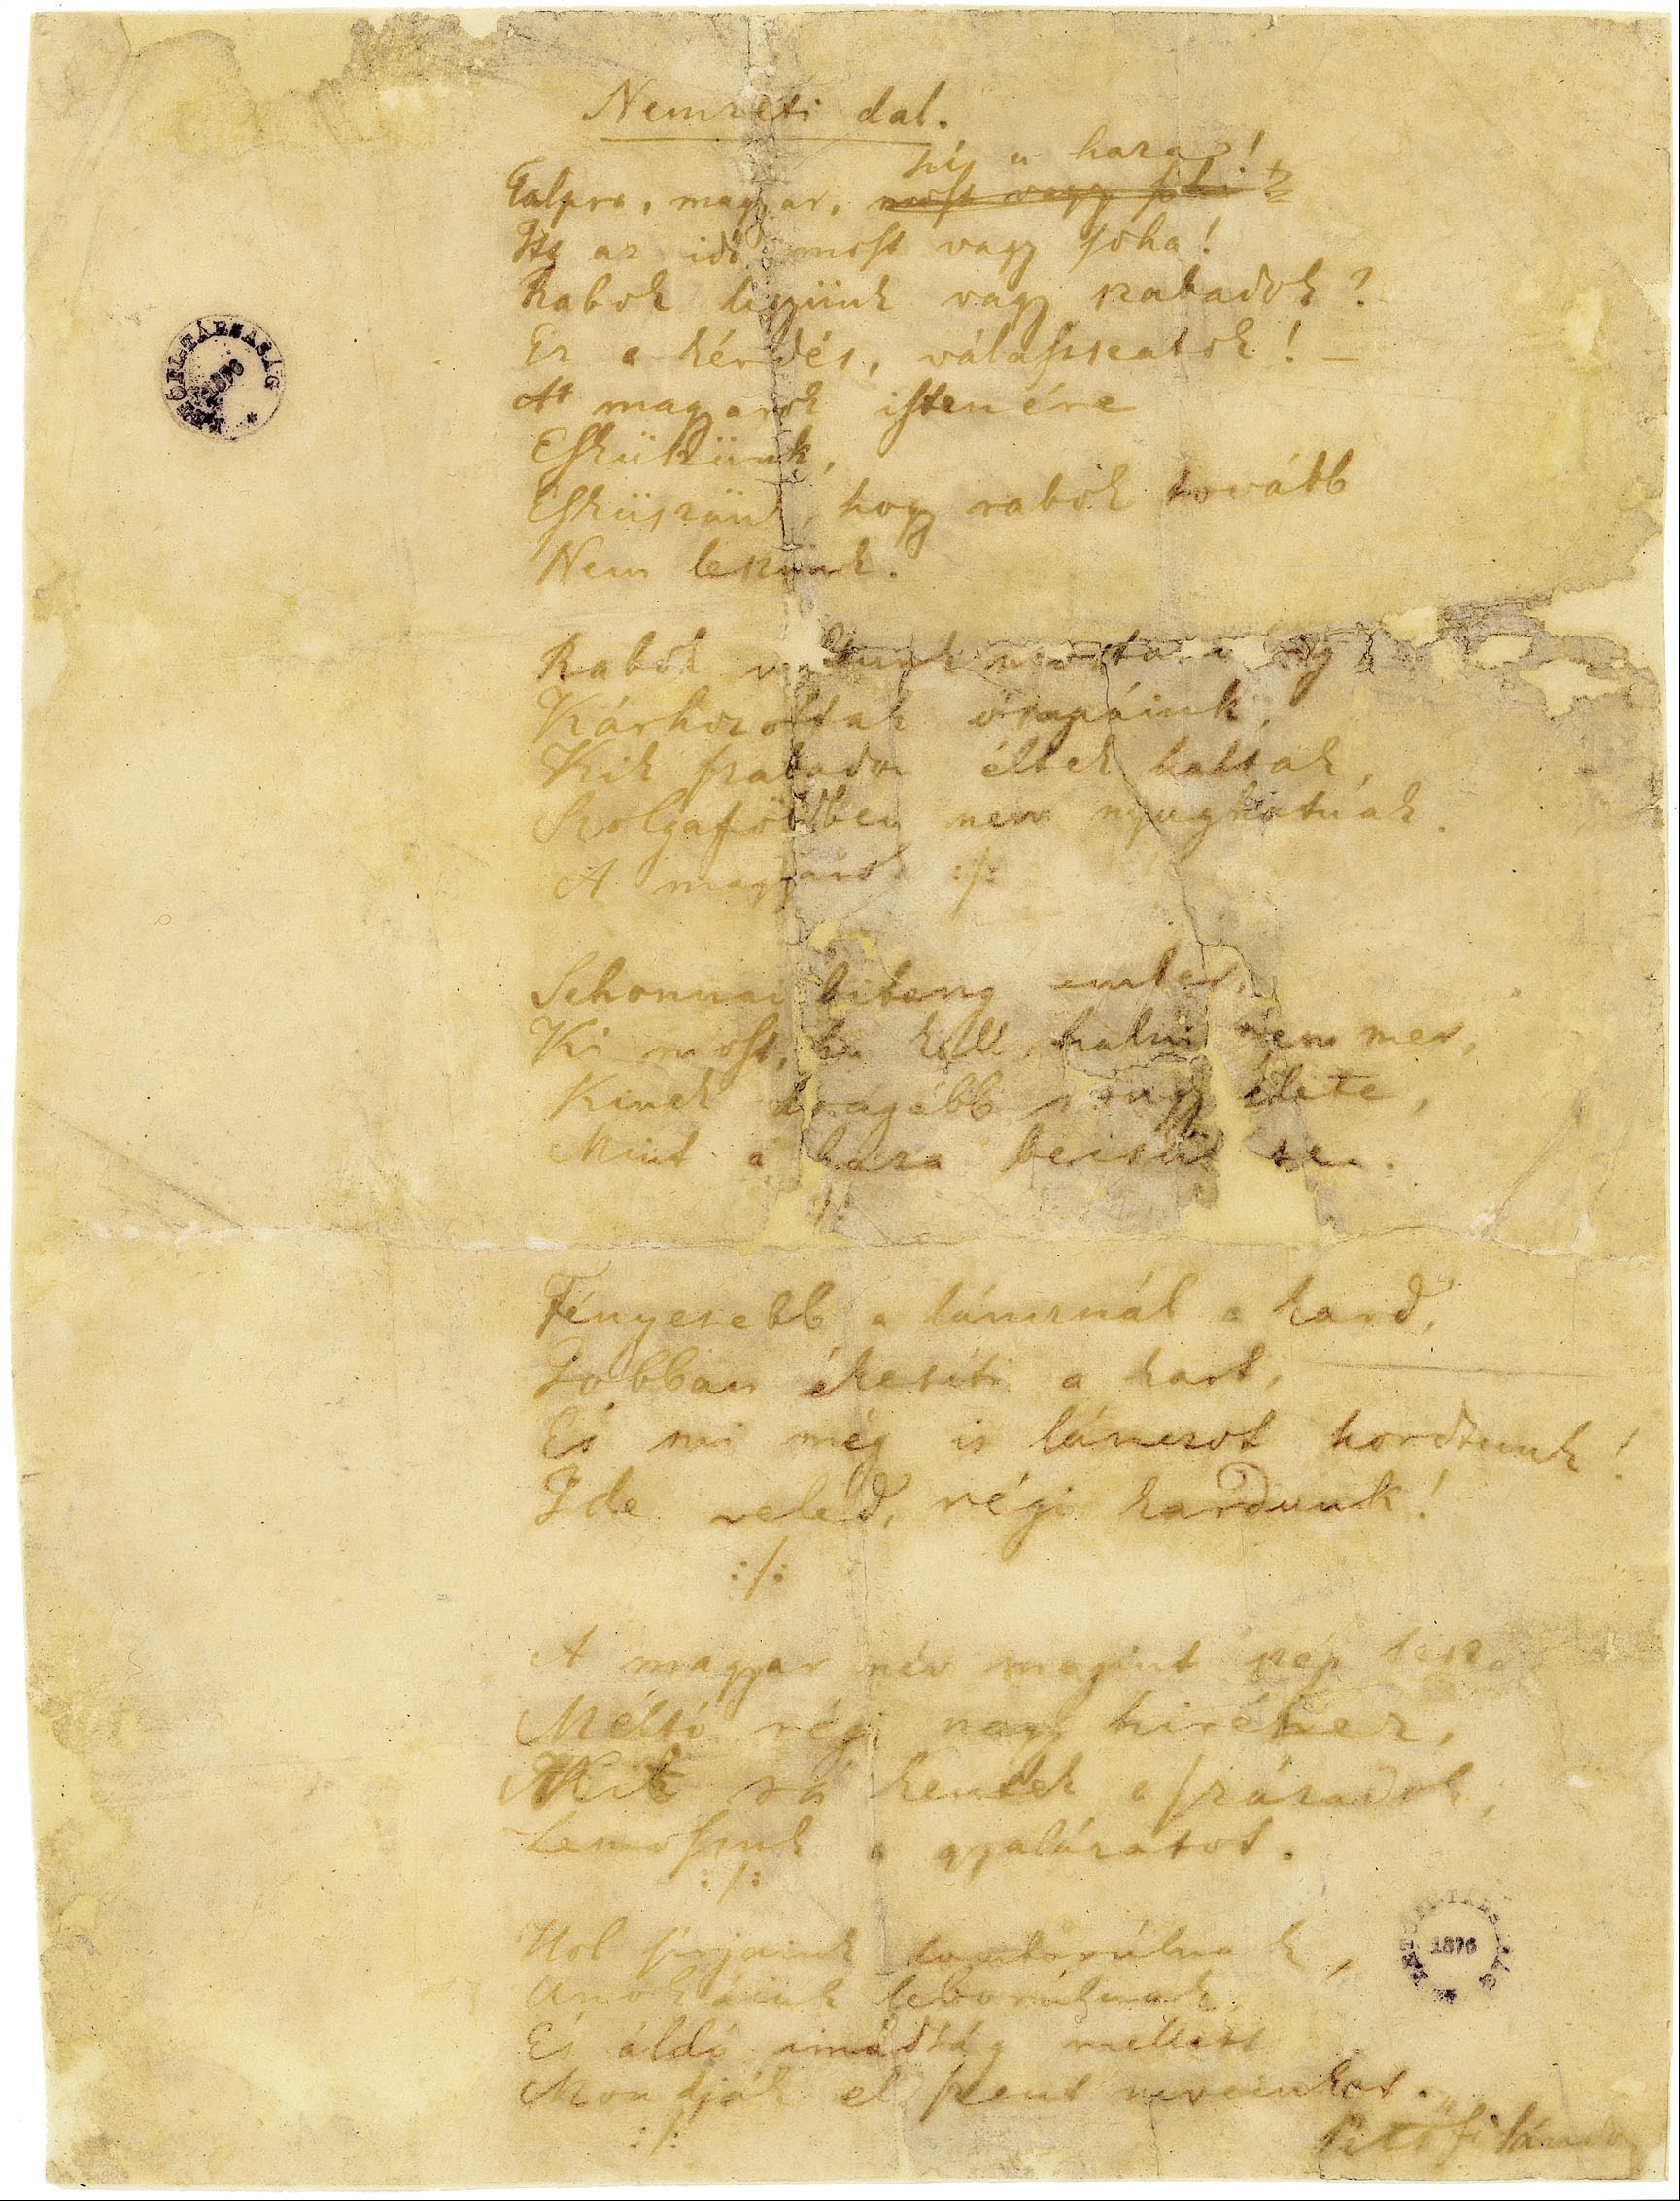 Nemzeti dal.
hí a haza!
Talpra, magyar, most vagy soha
Itt az idő, most vagy soha!
Rabok legyünk vagy szabadok?
Ez a kérdés, válasszatok! –
A magyarok istenére
Esküszünk,
Esküszünk, hogy rabok tovább
Nem leszünk.
Rabok voltunk mostanáig
Kárhozottak ősapáink,
Kik szabadon éltek haltak,
Szolgaföldben nem nyughatnak.
A magyarok :/:
Sehonnai bitang ember,
Ki most, ha kell, halni nem mer,
Kinek drágább rongy élete,
Mint a haza becsülete.
:/:
Fényesebb a láncznál a kard,
Jobban ékesíti a kart,
És mi még is lánczot hordtunk!
Ide veled, régi kardunk!
:/:
A magyar név megint szép lesz
Méltó régi nagy hiréhez,
Mit rá kentek a századok,
Lemossuk a gyalázatot.
:/:
Hol sirjaink domborúlnak,
Unokáink leborúlnak,
És áldó imádság mellett
Mondják el szent neveinket.
:/:
Petőfi Sándor
PETŐFI-TÁRSASÁG
PETŐFI-TÁRSASÁG
1876